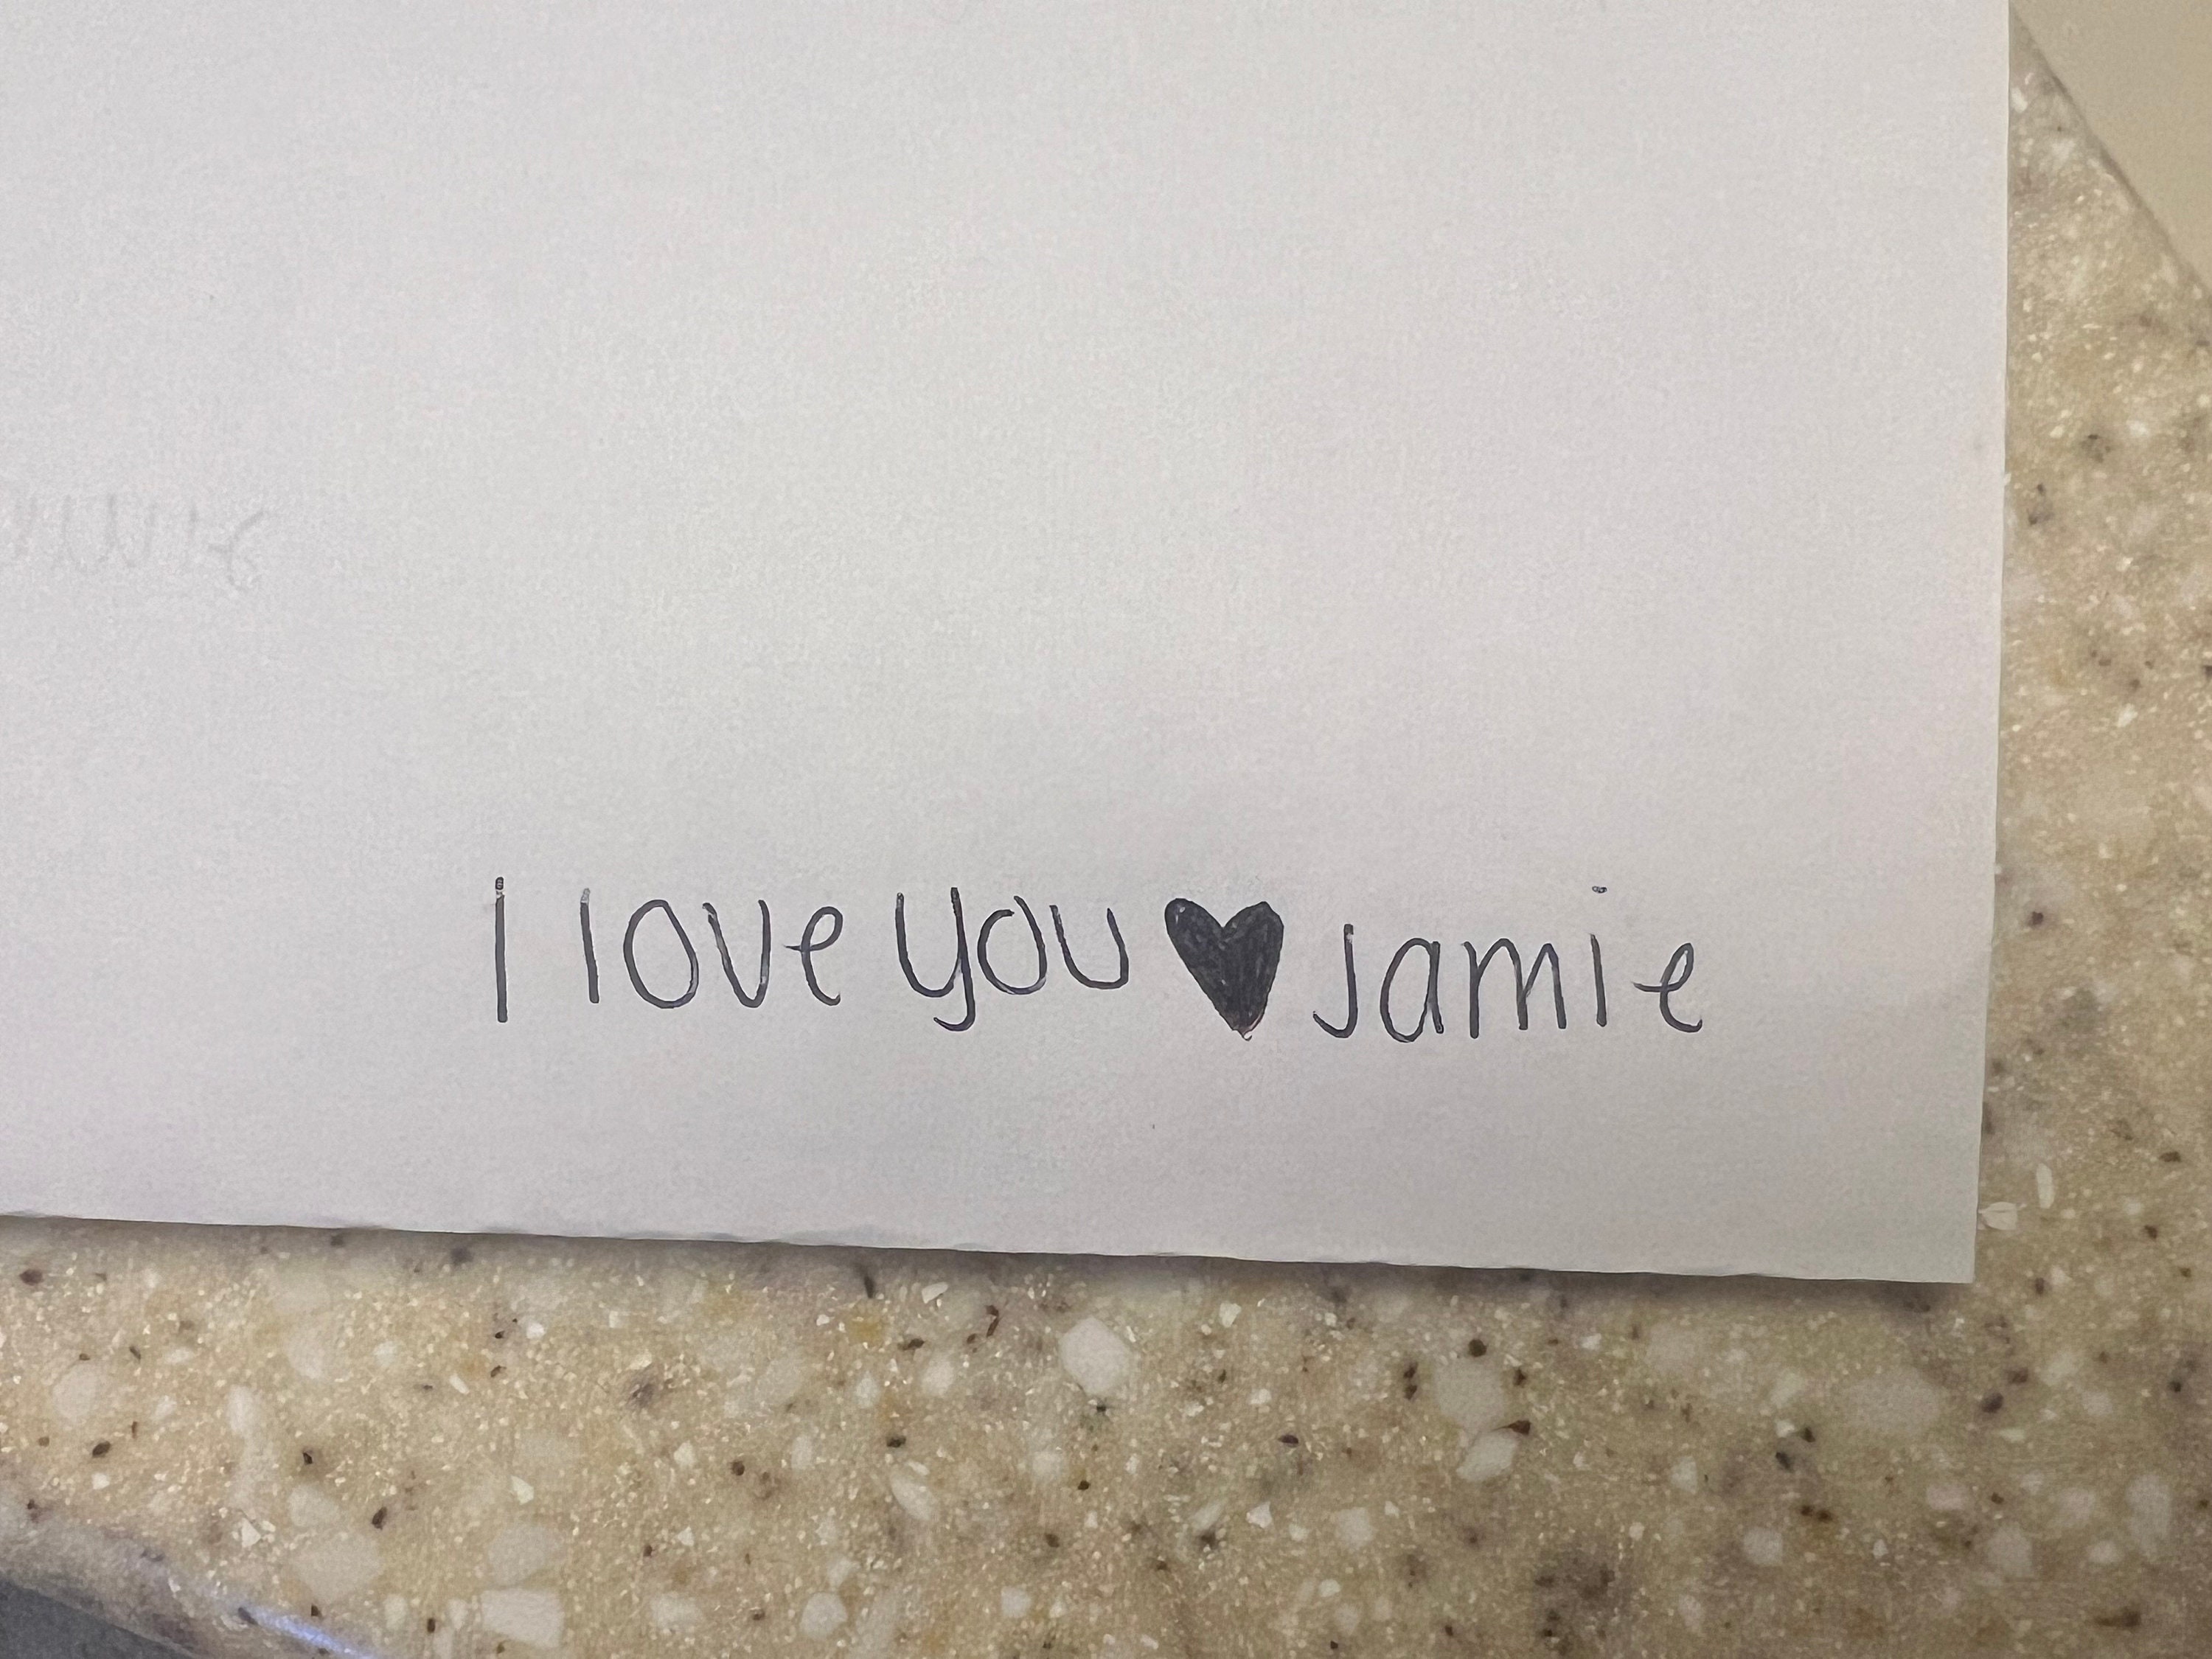 I love you ♥ Jamie